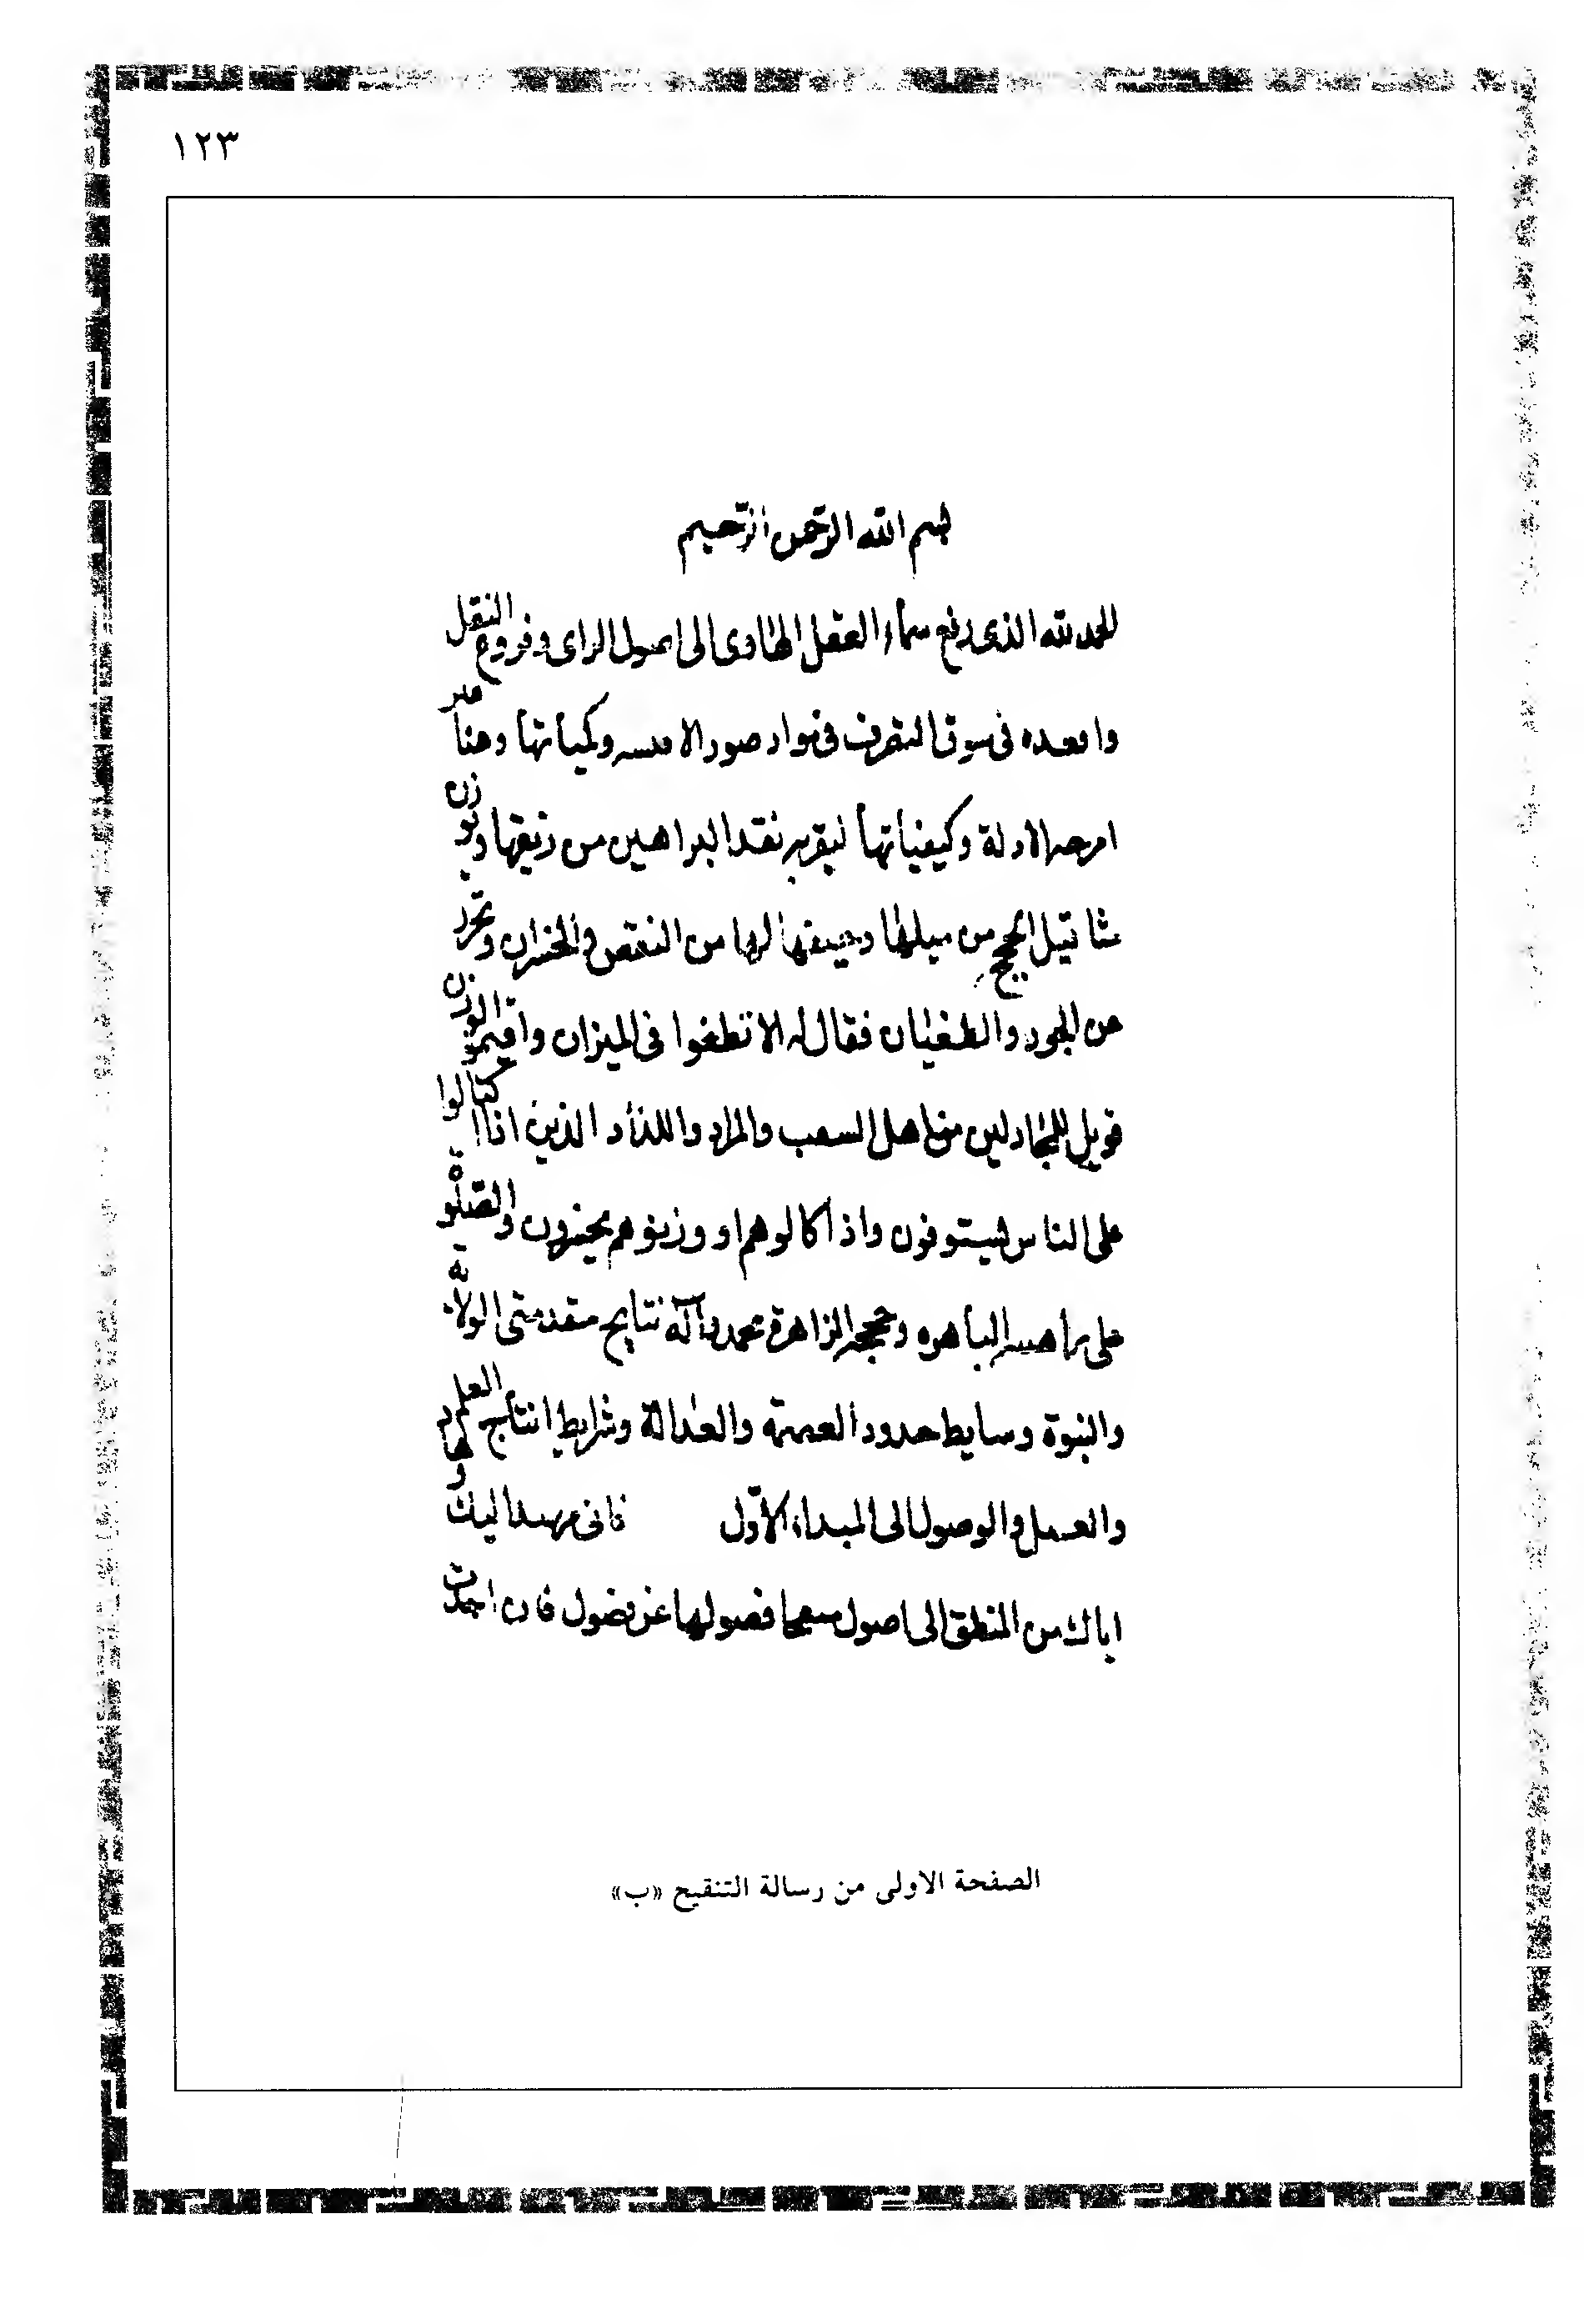 ١٢٣
بسم الله الرحمن الرحيم
الحمد لله الذى رفع سماء العقل الهادى الى اصول الراى وفروع النقل
واقعده فى سوق التصرف فى مواد صور الاقيسه وكمياتها وهنا
امزجه الادلة وكيفياتها ليقر به نقد البراهين من زيفها ويوزن
مثاقيل الحجج من ميلها وحيفها لربها من النقص والخسران وتحرز
عن الجور والطغيان فقال له الا تطغوا فى الميزان واقيموا الوزن
فويل للمجادلين من اهل الشغب والمراء واللداد الذين اذا اكتالوا
على الناس يستوفون واذا كالوهم او وزنوهم يخسرون والصلوة
على براهينه الباهره وحججه الزاهرة محمد وآله نتايج مقدمتى الولاية
والنبوة وسايط حدود العصمة والعدالة وشرايط انتاج العلم
والعمل والوصول الى المبداء الاول فانى مهد اليك
اياك من المنطق الى اصول فصولها عن فضول فان اجدت
الصفحة الاولى من رسالة التنقيح «ب»